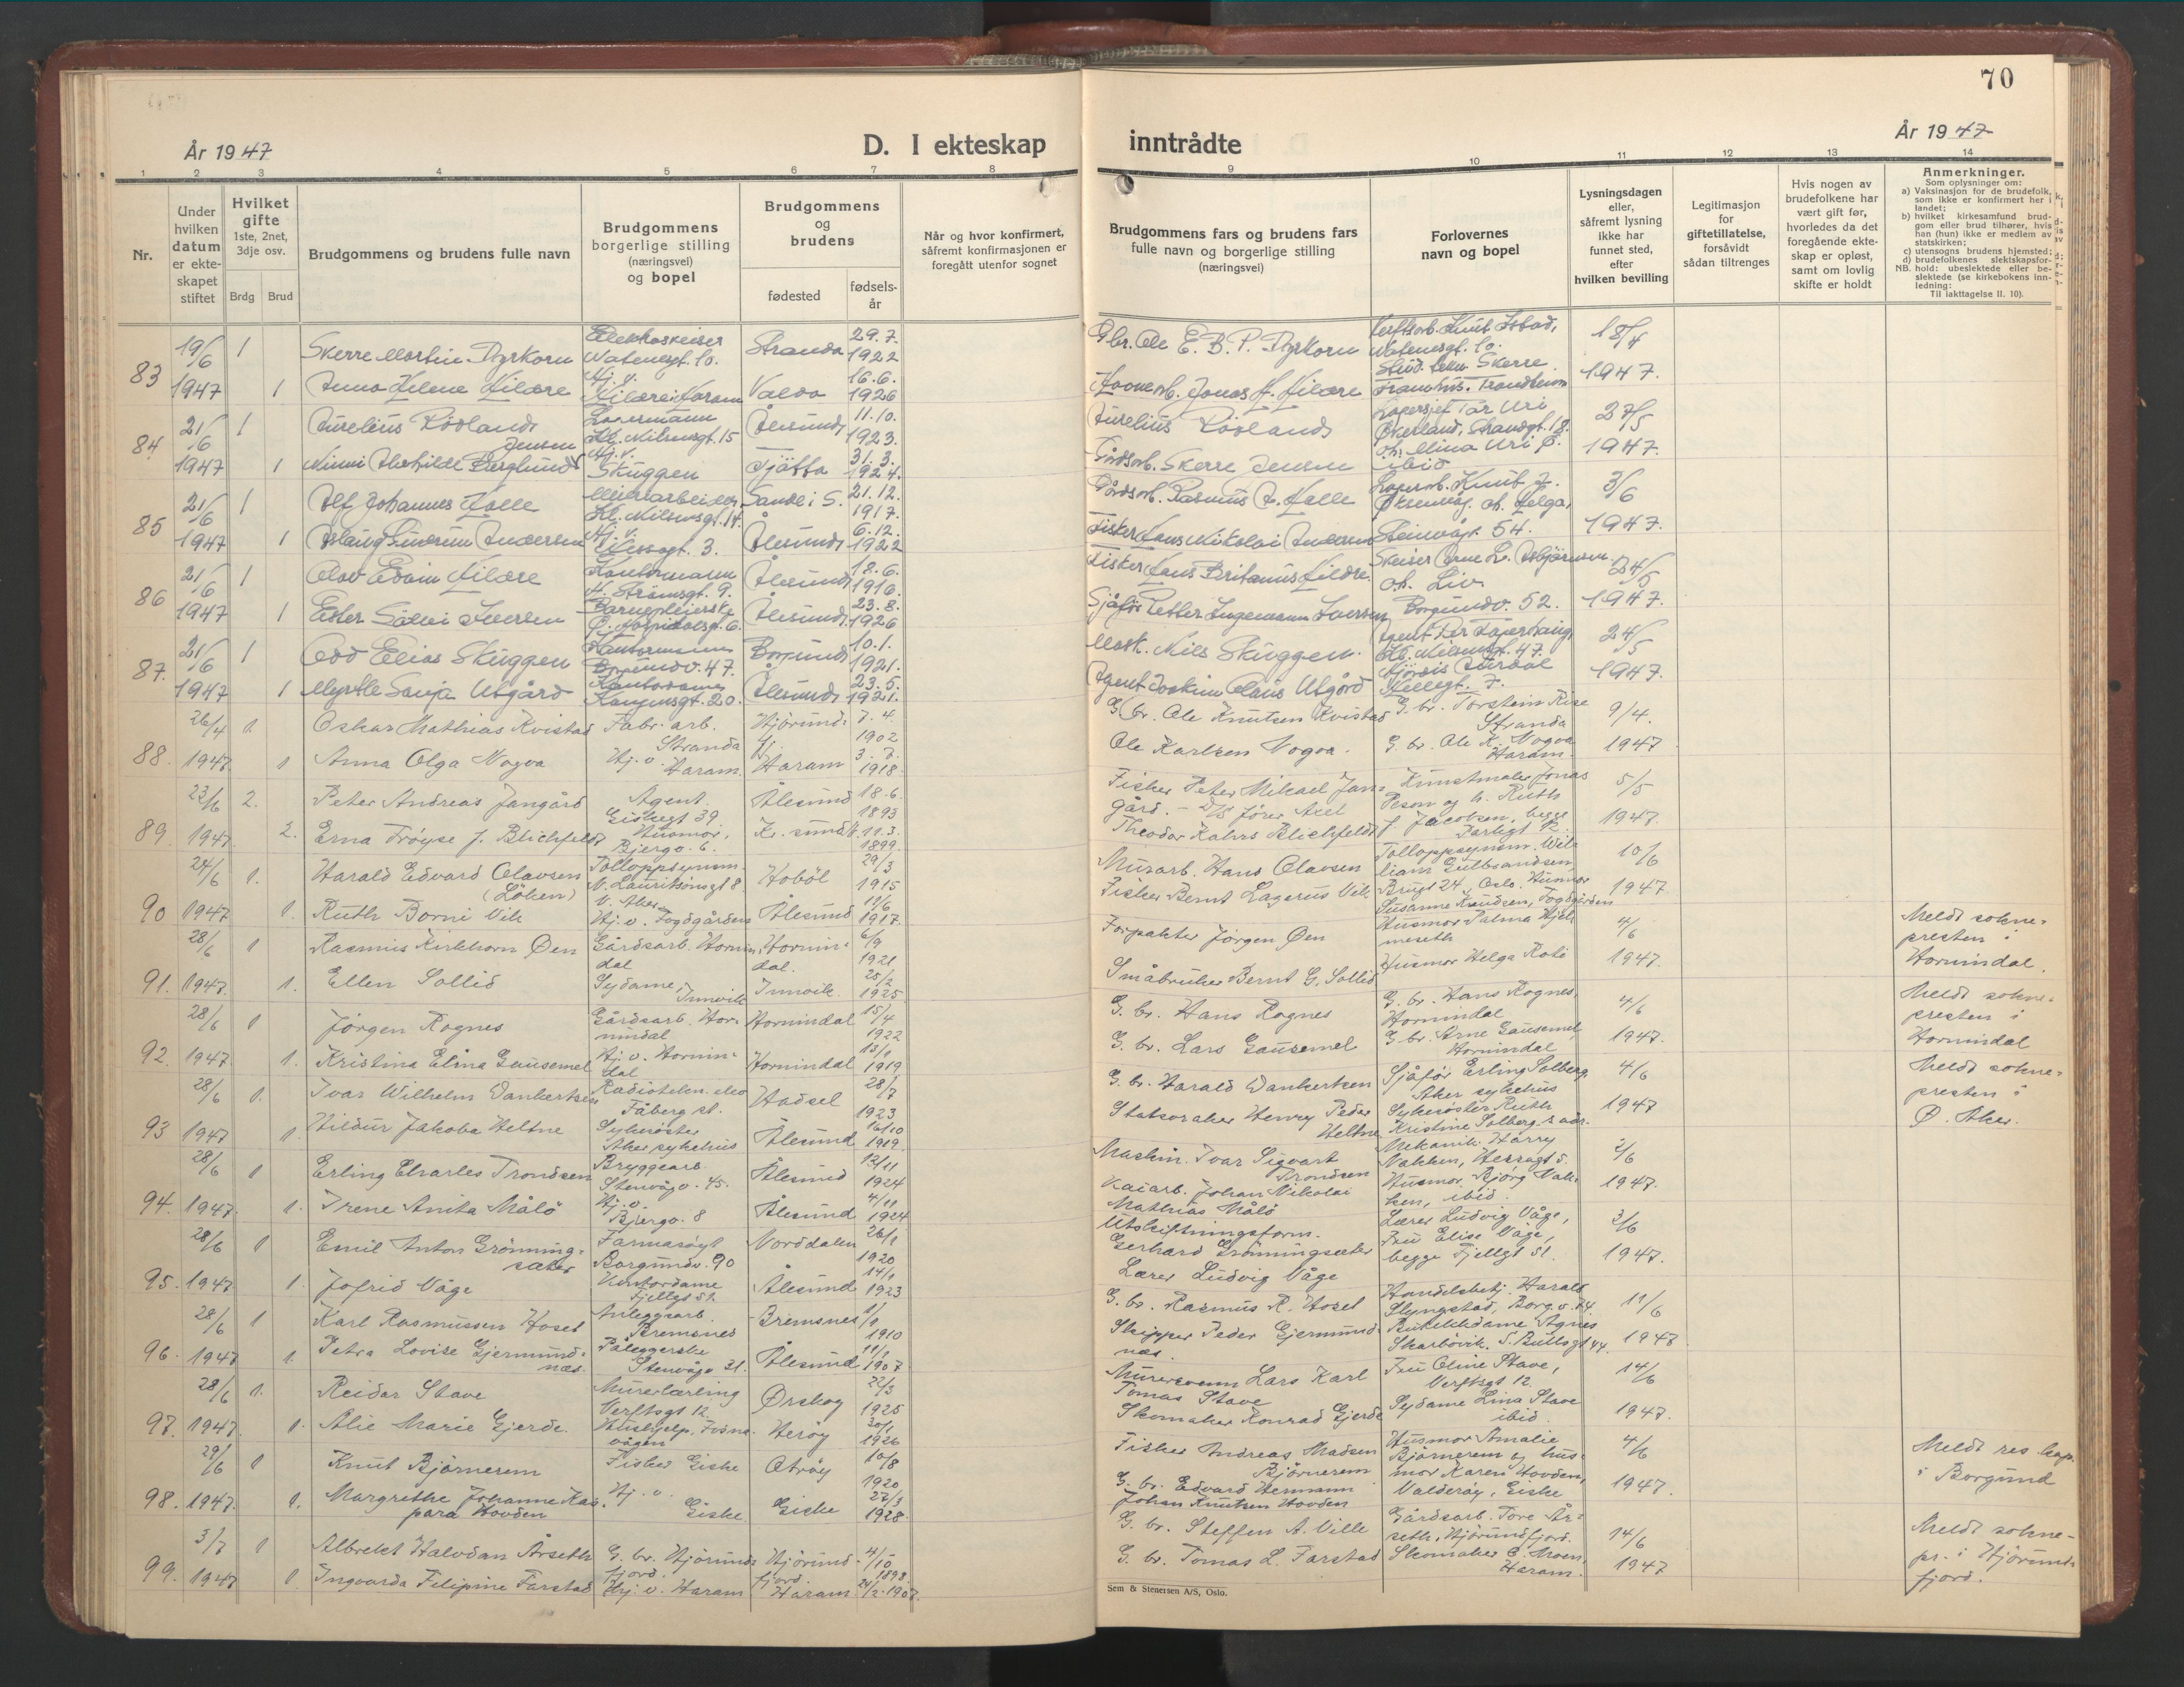 70
År 1947
D. I ekteskap
inntrådte
År 1947
1 2 3 4 5 6 7 8
9 10 11 12 13 14
Nr.
Under hvilken datum er ekteskapet stiftet
Hvilket gifte
1ste, 2net, 3dje osv.
Brdg Brud
Brudgommens og brudens fulle navn
Brudgommens borgerlige stilling (næringsvei) og bopel
Brudgommens og brudens
fødested
fødselsår
Når og hvor konfirmert, såfremt konfirmasjonen er foregått utenfor sognet
Brudgommens fars og brudens fars fulle navn og borgerlige stilling (næringsvei)
Forlovernes navn og bopel
Lysningsdagen eller, såfremt lysning ikke har funnet sted, efter hvilken bevilling
Legitimasjon for giftetillatelse, forsåvidt sådan tiltrenges
Hvis nogen av brudefolkene har vært gift før, hvorledes da det foregående ekteskap er opløst, samt om lovlig skifte er holdt
Anmerkninger.
Som oplysninger om:
a) Vaksinasjon for de brudefolk, som ikke er konfirmert her i landet;
b) hvilket kirkesamfund brudgom eller brud tilhører, hvis han (hun) ikke er medlem av statskirken;
c) utensogns brudens hjemsted;
d) brudefolkenes slektskapsforhold: ubeslektede eller beslektede (se kirkebokens innledning:
NB.
Til iakttagelse II. 10).
83 19/6 1947 1
Skerre Martin Dyrkorn
Watenesgt. 10.
Stranda 29.7. 1922
E. B. P. Dyrkorn
18/4 1947.
1 Anna Helene Hildre
Hj. v.
16.6. 1926
Jonas H. Hildre
84 21/6 1947 1
Aurelius Lövland
Lagermann
Kl. Nilsensgt. 15
Ålesund 11.10. 1923.
Aurelius Lövland
Strandgt. 18.
27/5 1947.
1
Hj. v.
Skuggen
Tjötta 31.3. 1924.
Skerre Jensen
ibid
85 21/6 1947 1
Alf Johannes Halle
Meieriarbeider,
Kl. Nilsensgt. 14.
Sande i S. 21.12. 1917.
Rasmus J. Halle
3/6 1947.
1
Andersen
Hj. v.
Ålesund 6.12. 1922
Fisker Hans Nikolai Andersen
Steinvåg. 54.
86 21/6 1947 1
Olav Edvin Hildre
Kontormann
H. Strömsgt. 9.
Ålesund 18.6. 1916.
Fisker Hans Britanus Hildre.
24/5 1947.
1 Ester Sölvi Iversen
Barnepleierske
Ø. Hospitalsgt. 6.
Ålesund. 23.8. 1926
Sjåför Petter Ingemann Iversen
Borgundv. 52.
87. 21/6 1947 1
Odd Elias Skuggen
Kontormann
Borgundv. 47.
Borgund 10.1. 1921.
Mask. Nils Skuggen.
Kl. Nilsensgt. 47.
24/5 1947.
1 Myrtle Sonja Utgård
Kontordame
Kongensgt. 20.
Ålesund 23.5. 1921.
Agent Joakim Olaus Utgård
88. 26/4 1947. 1
Oskar Mathias Kvistad
Fabr. arb.
Stranda
Hjörund- 7.4. 1902
G. br. Ole Knutsen Kvistad
G. br. Torstein Rise
Stranda
9/4. 1947
1 Anna Olga Nogva
Hj. v. Haram.
Haram 3.7. 1918.
Ole Karlsen Nogva.
G. br. Ole K. Nogva
Haram.
89. 23/6 1947 2.
Peter Andreas Jangård
Agent.
Giskegt 39.
Ålesund 18.6. 1893
Fisker Peter Mikael Jan-
gård. — D/S förer Axel
Kunstmaler Jonas
Peson og h. Ruth
5/5 1947.
2. Erna Fröyse J. Blichfeldt
Husmor,
Bjergv. 6.
Kr. sund N. 11.3. 1899.
Theodor Kahrs Blichfeldt
J. Jacobsen, begge
90 24/6 1947 1.
Harald Edvard Olavsen
(Löken)
Tolloppsynsm.
N. Lauritsönsgt 8.
V. Aker
Hoböl 29/3 1915
Murarb. Hans Olavsen
Tolloppsynsm. Wil-
liam Gulbrandsen,
10/6 1947.
1. Ruth Borni Vik
Hj. v. Fogdgården
Ålesund 12/6 1917.
Fisker Bernt Lagerus Vik
Brugt 24, Oslo. Husmor
Susanne Knudsen, Fogdgården
91. 28/6 1947. 1
Rasmus Kirkhorn Øen
Gårdsarb. Hornin-
dal
Hornin-
dal. 6/9 1921
Forpakter Jörgen Øen
Husmor Palma Hjel-
meseth
4/6 1947.
Meldt sokne-
presten i
Hornindal.
1. Ellen Sollid
Sydame,
Innvik
Innvik. 25/2 1925
Småbruker Bernt G. Sollid
Husmor Helga Roti
92. 28/6 1947. 1
Jörgen Rognes
Gårdsarb. Hor-
nindal
Hornindal 15/4 1922
G. br. Hans Rognes
G. br. Hans Rognes,
Hornindal
4/6 1947.
Meldt sokne-
presten i
Hornindal
1. Kristina Elina Gausemel
Hj. v. Hornin-
dal
Hornindal 13/1 1919
G. br. Lars Gausemel
G. br. Arne Gausemel,
Hornindal
93 28/6 1947 1.
Ivar Wilhelm Dankertsen
Fåberg st.
Hadsel 28/7 1923
G. br. Harald Dankertsen
Sjåför Erling Solberg,
Aker sykehus
4/6 1947
Meldt sokne-
presten i
Ø. Aker.
1. Hildur Jakoba Heltne
Sykesöster
Aker sykehus
Ålesund 16/10 1919.
Statsoraker Henry Peder
Heltne
Sykesöster Ruth
Kristine Solberg, s. adr.
94. 28/6 1947. 1
Erling Charles Trondsen
Bryggearb.
Stenvågv. 45.
Ålesund 13/11 1924
Maskin. Ivar Sigvart
Trondsen
Mekanik. Harry
Nakken, Hessagt 5.
2/6 1947.
1. Irene Anita Målö
Hj. v.
Bjergv. 8
Ålesund 4/11 1924
Kaiarb. Johan Nikolai
Mathias Målö
Husmor Bjørg Nak-
ken, ibid.
95. 28/6 1947. 1
Emil Anton Grönning-
sæter
Farmasöyt
Borgundv. 90
Norddalen 26/1 1920
Utskiftningsform.
Gerhard Grönningsæter
Lærer Ludvig Våge,
Fru Elise Våge,
begge Fjellgt 51.
3/6 1947.
1. Jofrid Våge
Kontordame
Fjellgt 51.
Ålesund 14/1 1923
Lærer Ludvig Våge
96. 28/6 1947 1
Karl Rasmussen Hoset
Anleggsarb.
Bremsnes
Bremsnes 1910
G. br. Rasmus R. Hoset
Handelsbetj. Harald
Slyngstad, Borg. v. 74.
11/6 1947
1. Petra Lovise Gjermund-
nes.
Påleggerske
Stenvågv 21.
Ålesund 1907
Skipper Peder Gjermund-
nes.
Butikkdame Agnes
Skarbövik, S. Bullsgt 44.
97. 28/6 1947. 1.
Reidar Stave
Murerlærling
Verftsgt 12.
Ørskog 22/3 1925
Murersvenn Lars Karl
Tomas Stave
Fru Oline Stave,
Verftsgt 12
14/6 1947.
1. Alie Marie Gjerde.
Hushjelp, Fosna-
vågen
Herøy 30/1 1926
Skomaker Konrad Gjerde
Sydame Lina Stave
ibid.
98. 29/6 1947. 1
Knut Björnerem
Fisker Giske
Otröy 10/8 1920
Fisker Andreas Madsen
Björnerem
Husmor Amalie
Björnerem og hus-
mor Karen Hovden,
Valderöy, Giske
4/6 1947.
Meldt res. kap.
i Borgund
1. Margrethe Johanne Kas-
para Hovden
Hj. v.
Giske
Giske 27/3 1928.
G. br. Edvard Hermann
Johan Knutsen Hovden
99. 3/7 1947 1
Albrekt Halvdan Årseth
G. br. Hjörund-
fjord.
Hjörund-
fjord. 4/10 1898
G. br. Steffen A. Ville
Gårdsarb. Tore År-
seth, Hjörundfjord.
14/6 1947
Meldt sokne-
pr. i Hjörund-
fjord.
1. Ingvarda Filipine Farstad
Hj. v. Haram
Haram 24/2 1907.
G. br. Tomas L. Farstad
Skomaker C. Moen,
Haram.
Sem & Stenersen A/S, Oslo.